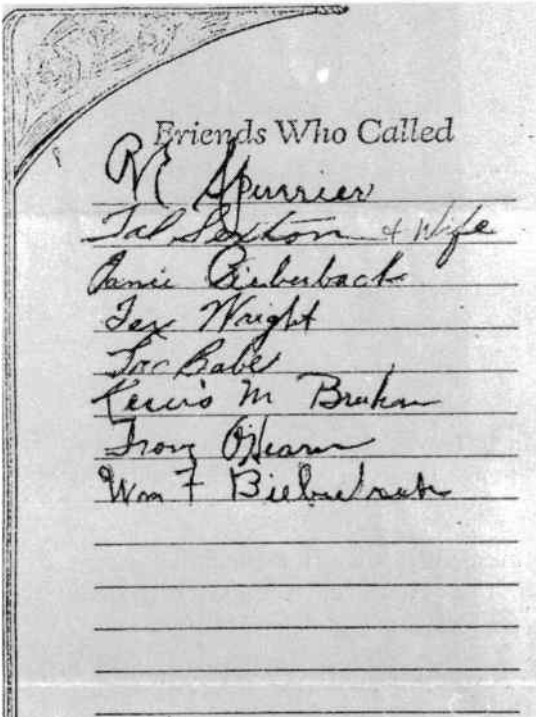 Friends Who Called
R E Spurrier
Tal Sexton & Wife
Bieberback
Tex Wright
Babe
Lewis M
Troy O'Hearn
Wm F Bieberback